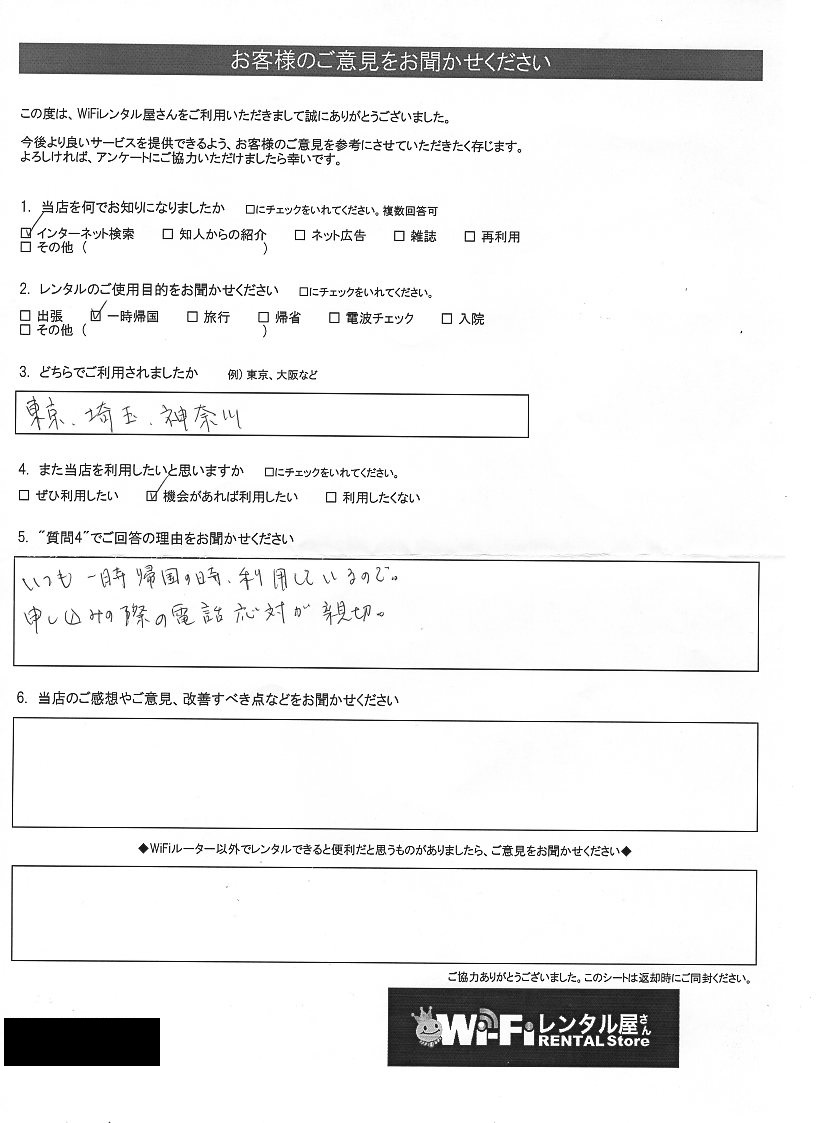 お客様のご意見をお聞かせください
この度は、WiFiレンタル屋さんをご利用いただきまして誠にありがとうございました。
今後より良いサービスを提供できるよう、お客様のご意見を参考にさせていただきたく存じます。
よろしければ、アンケートにご協力いただけましたら幸いです。
1. 当店を何でお知りになりましたか □にチェックをいれてください。複数回答可
☑インターネット検索 □ 知人からの紹介 □ ネット広告 □ 雑誌 □ 再利用
□ その他 ( )
2. レンタルのご使用目的をお聞かせください □にチェックをいれてください。
□ 出張 ☑ 一時帰国 □ 旅行 □ 帰省 □ 電波チェック □ 入院
□ その他 ( )
3. どちらでご利用されましたか 例) 東京、大阪など
東京、埼玉、神奈川
4. また当店を利用したいと思いますか □にチェックをいれてください。
□ ぜひ利用したい ☑ 機会があれば利用したい □ 利用したくない
5. "質問4"でご回答の理由をお聞かせください
いつも一時帰国の時、利用しているので。
申し込みの際の電話応対が親切。
6. 当店のご感想やご意見、改善すべき点などをお聞かせください
◆WiFiルーター以外でレンタルできると便利だと思うものがありましたら、ご意見をお聞かせください◆
ご協力ありがとうございました。このシートは返却時にご同封ください。
Wi-Fiレンタル屋さん
RENTAL Store